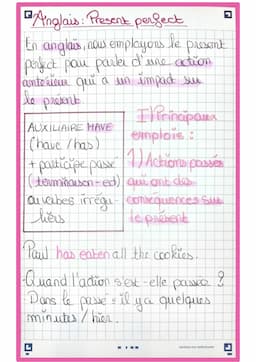 Anglais : Present perfect
En anglais, nous employons le present
perfect pour parler d'une action
antérieure qui a un impact sur
le présent
AUXILIAIRE HAVE
(have / has)
+ participe passé
(terminaison - ed)
ou verbes irrégu-
liers
I) Principaux
emplois :
1) Actions passées
qui ont des
conséquences sur
le présent
Paul has eaten all the cookies.
- Quand l'action s'est-elle passée ?
Dans le passé = il y a quelques
minutes / hier.